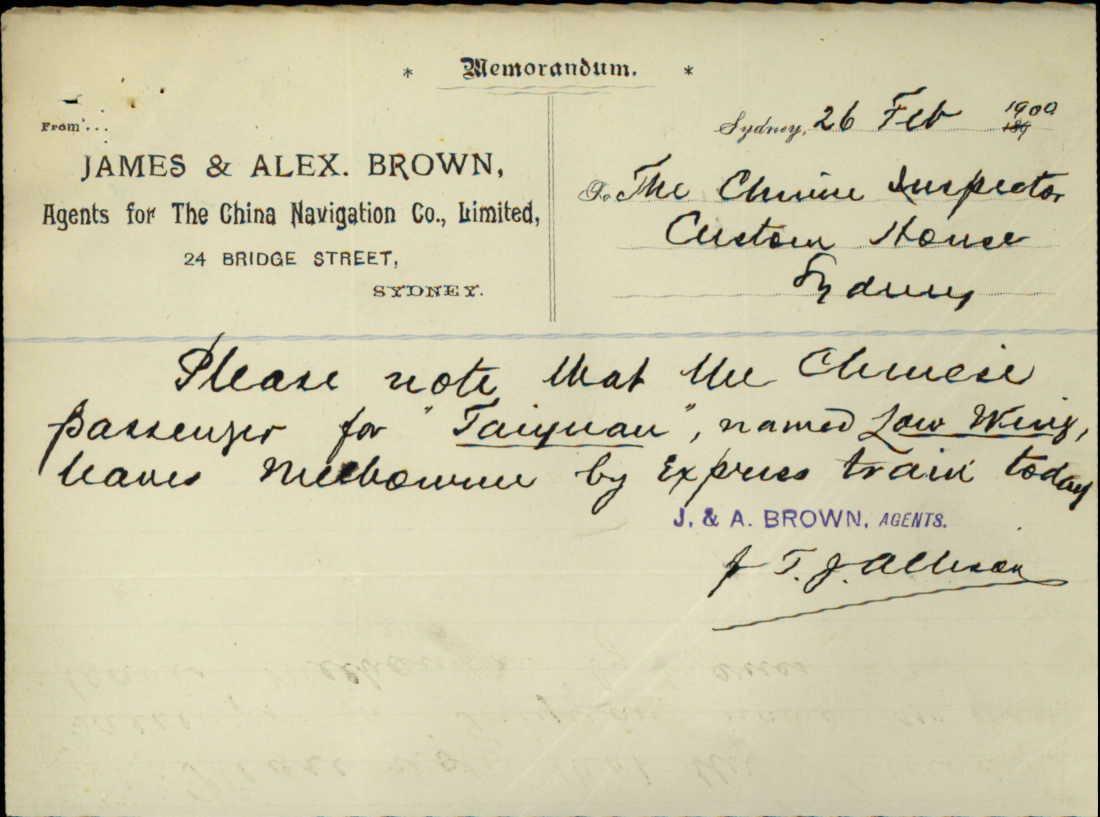 * Memorandum. *
From...
JAMES & ALEX. BROWN,
Agents for The China Navigation Co., Limited,
24 BRIDGE STREET,
SYDNEY.
Sydney, 26 Feb 1900
189
To The Chinese Inspector
Custom House
Sydney
Please note that the Chinese
passenger for "Taiyuan", named Low Wing,
leaves Melbourne by Express train today
J. & A. BROWN, AGENTS.
T. J. Allison